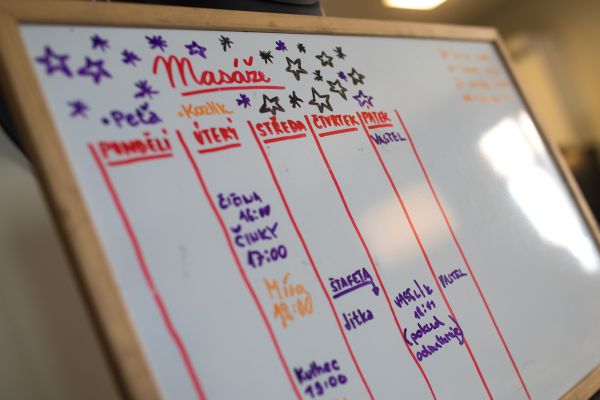 Masáže
• Peťa
• Kozlík
PONDĚLÍ
ÚTERÝ
STŘEDA
ČTVRTEK
PÁTEK
VASTEL
ČIČINA
16:00
ČINKY
17:00
Míra
18:00
Kulhec
19:00
ŠTAFETA
Jitka
18:00
(pokud
VASTEL